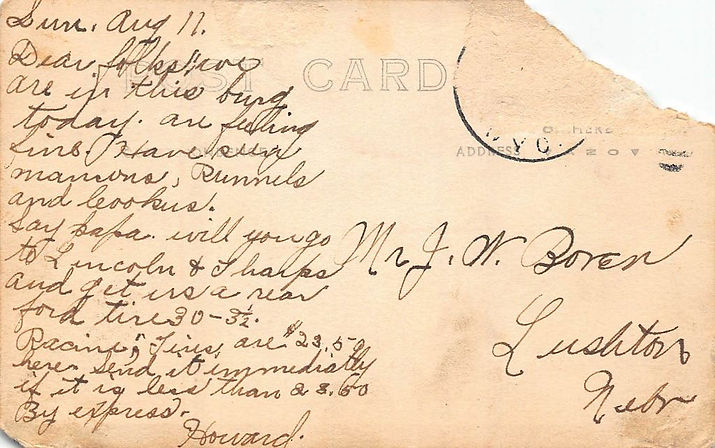 Sun. Aug 11.
Dear folks; we
are in this burg
today. are feeling
fine. Have seen
mansons, Runnels
and
Say papa. will you go
to Lincoln & Tharps
and get us a rear
ford tire 30-3½.
Racine Tires are $23.50
here send it immediatly
if it is less than 23.50
By express.
Howard.
POST CARD
ADDRESS
WYO.
Mr J. W. Boren
Lushton
Nebr